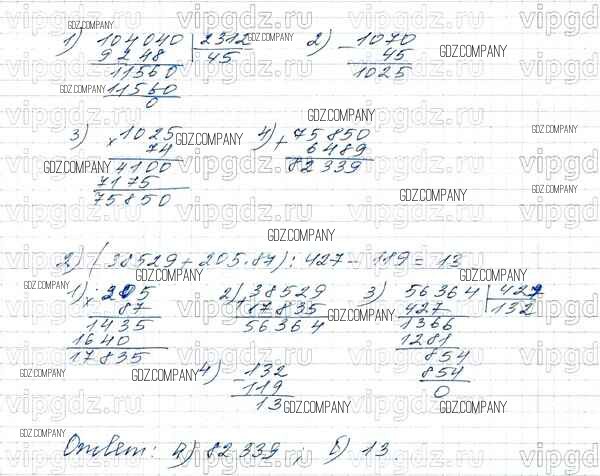 1) 104040 | 2312
9248 45
11560
11560
0
2) - 1070
45
1025
3) × 1025
74
4100
7175
75850
4) + 75850
6489
82339
2) (38529 + 205·87) : 427 - 119 = 13
1) × 205
87
1435
1640
17835
2) + 38529
17835
56364
3) 56364 | 427
427 132
1366
1281
854
854
0
4) - 132
119
13
Ответ: а) 82339 ; б) 13.
vipgdz.ru
GDZ.COMPANY